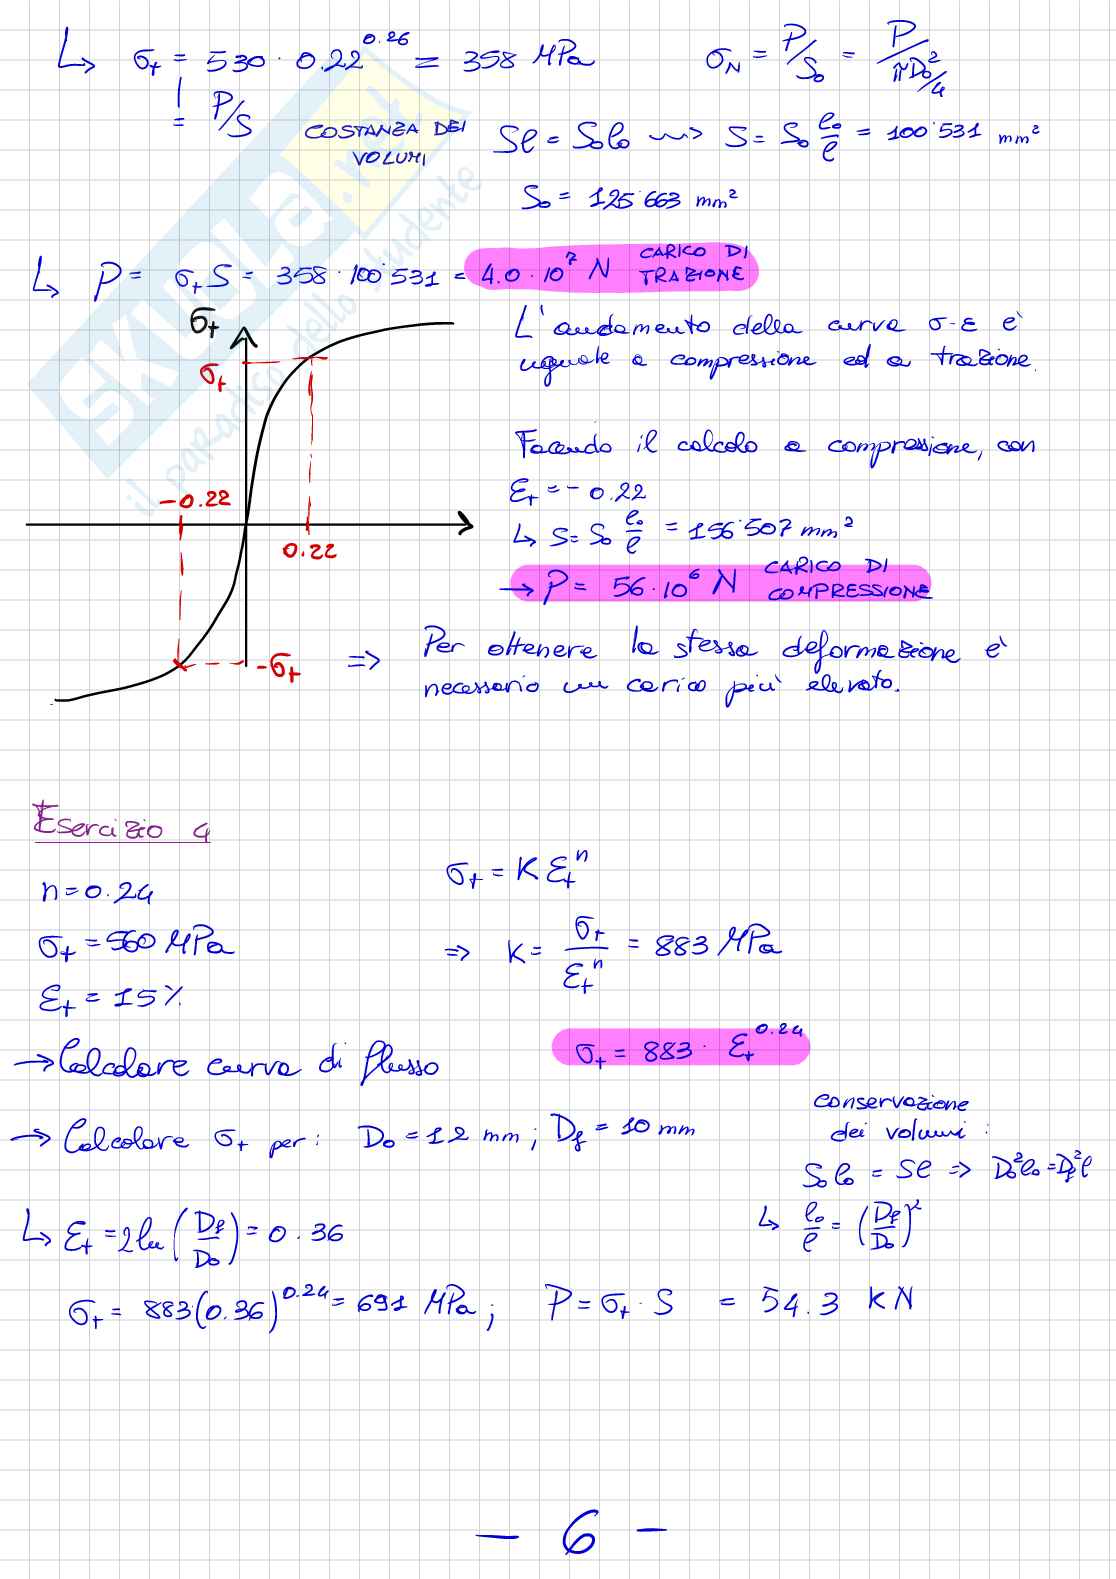 ↳ σt = 530 · 0.22^0.26 = 358 MPa    σN = P/S₀ = P/(πD₀²/4)
= P/S
COSTANZA DEI VOLUMI    Sl = S₀l₀ ⇝ S = S₀ l₀/l = 100'531 mm²
S₀ = 125'663 mm²
↳ P = σt S = 358 · 100'531 = 4.0 · 10⁷ N CARICO DI TRAZIONE
σt
σt
-0.22
0.22
-σt
L'andamento della curva σ-ε è
uguale a compressione ed a trazione.
Facendo il calcolo a compressione, con
εt = - 0.22
↳ S = S₀ l₀/l = 156'507 mm²
→ P = 56 · 10⁶ N CARICO DI COMPRESSIONE
=> Per ottenere la stessa deformazione è
necessario un carico più elevato.
SKUOLA.net
il paradiso dello studente
Esercizio 4
n = 0.24    σt = K εt^n
σt = 560 MPa    => K = σt/εt^n = 883 MPa
εt = 15%
→ Calcolare curva di flusso    σt = 883 · εt^0.24
→ Calcolare σt per: D₀ = 12 mm; Df = 10 mm
conservazione
dei volumi :
S₀l₀ = Sl => D₀²l₀ = Df²l
↳ l₀/l = (Df/D₀)²
↳ εt = 2ln(Df/D₀) = 0.36
σt = 883(0.36)^0.24 = 691 MPa; P = σt · S = 54.3 KN
- 6 -